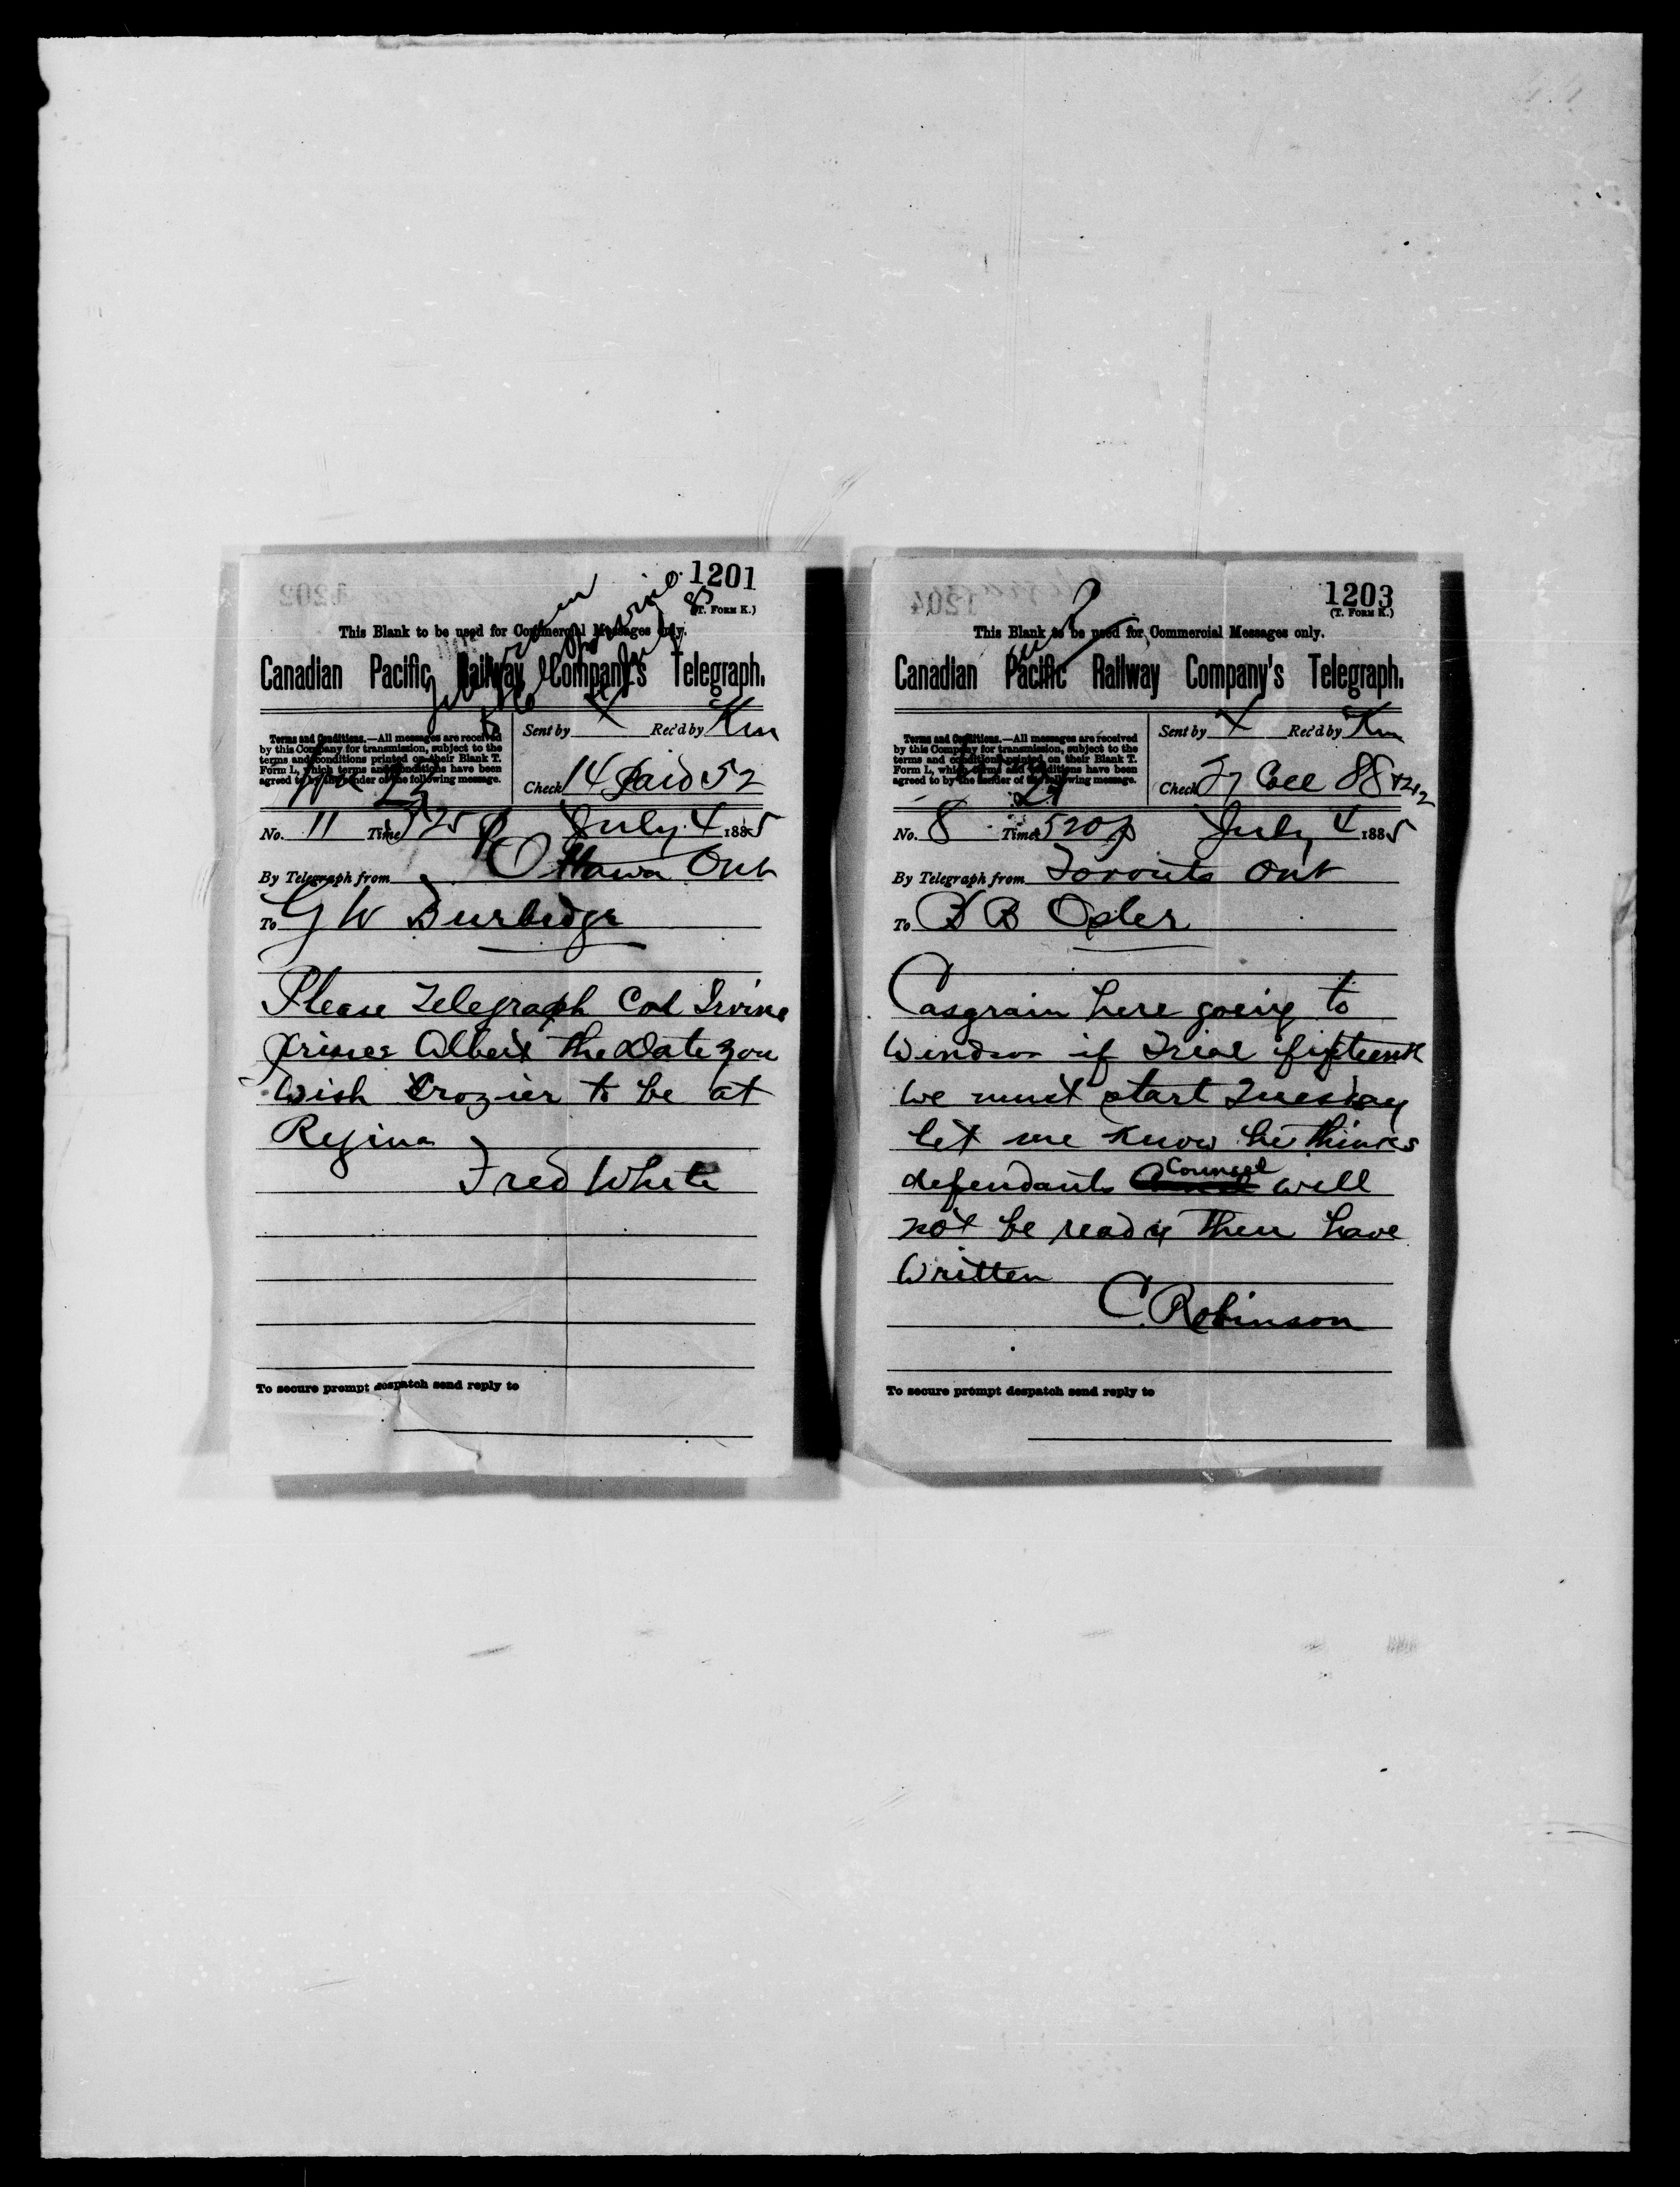 1201
(T. Form K.)
This Blank to be used for Commercial Messages only.
Canadian Pacific Railway Company's Telegraph.
Terms and Conditions.—All messages are received
by this Company for transmission, subject to the
terms and conditions printed on their Blank T.
Form L, which terms and conditions have been
agreed to by the sender of the following message.
Sent by X Rec'd by Km
Check 14 Paid 52
No. 11 Time 525 p July 4 1885
By Telegraph from Ottawa Ont
To G W Burbidge
Please Telegraph Col Irvine
Prince Albert the date you
wish Crozier to be at
Regina
Fred White
To secure prompt despatch send reply to
1203
(T. Form K.)
This Blank to be used for Commercial Messages only.
Canadian Pacific Railway Company's Telegraph.
Terms and Conditions.—All messages are received
by this Company for transmission, subject to the
terms and conditions printed on their Blank T.
Form L, which terms and conditions have been
agreed to by the sender of the following message.
Sent by X Rec'd by Km
Check 27 Coll 88
No. 8 Time 520 p July 4 1885
By Telegraph from Toronto Ont
To B B Osler
Casgrain here going to
Windsor if Trial fifteenth
we must start Tuesday
let me know he thinks
defendants Counsel will
not be ready then have
written
C. Robinson
To secure prompt despatch send reply to